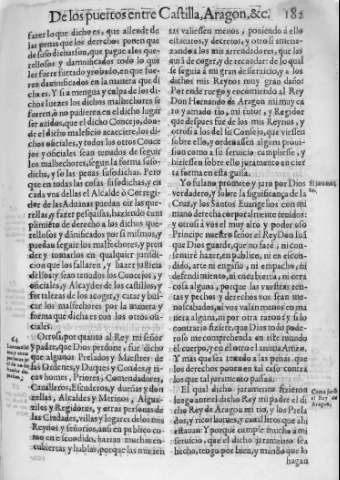 De los puertos entre Castilla, Aragon, &c. 182
fazer lo que dicho es, que allende de
las penas que los derechos ponen que
de suso dichas son, que pague a los que-
rellosos y damnificados todo lo que
les fuere furtado y robado, en que fue-
ren damnificados en la manera que di
cha es. Y si a mengua y culpa de los di-
chos fuezes los malhechores se
fueren, o no pudieren en el dicho lugar
ser auidos, que el dicho Concejo, don-
de el dicho maleficio acaeciere, los di-
chos oficiales, y todos los otros Conce
jos y oficiales sean tenudos de seguir
los malhechores, segun la forma suso-
dicha, y so las penas susodichas. Pero
que en todas las cosas susodichas, y en
cada vna dellas el Alcalde o Corregi-
dor de las Aduanas puedan oir las que-
rellas, y fazer pesquisas, haziendo cum
plimiento de derecho a los dichos que-
rellosos y danificados por si mismos, y
puedan seguir los malhechores, y pren
der y tomarlos en qualquier juridi-
cion que los fallaren, y hazer justicia
dellos: y sean tenudos los Concejos, y
oficiales, y Alcaydes de los castillos, y
fortalezas de los acoger, y catar y bus-
car los malhechores por la manera y
forma que dicha es con los otros ofi-
ciales.
Otrosi, por quanto al Rey mi señor
y padre, que Dios perdone, fue dicho
que algunos Prelados y Maestres de
las Ordenes, y Duques y Condes, y ri-
cos homes, Priores, Comendadores,
Caualleros, Escuderos, y dueñas y don
zellas, Alcaldes y Merinos, Algua-
ziles y Regidores, y otras personas de
las Ciudades, villas y lugares de los mis
Reynos y señorios, assi en publico co-
mo en escondido, hazian muchas en-
cubiertas y hablas, porque las mis ren
tas valiessen menos, poniendo a ello
estoruos, y decretos, y otrosi amena-
zando a los mis arrendadores, que las
auian de coger, y de recaudar: de lo qual
se seguia a mi gran deseruicio, y a los
dichos mis Reynos muy gran daño:
Por ende ruego y encomiendo al Rey
Don Hernando de Aragon mi muy ca
ro y amado tio, mi tutor, y Regidor
que despues fue de los mis Reynos, y
otrosi a los del su Consejo, que viessen
sobre ello, y ordenassen alguna proui-
sion como a su seruicio cumpliesse, y
hiziessen sobre ello juramento en cier
ta forma en esta guisa.
Yo fulano prometo y juro por Dios
verdadero, y sobre la significança de la
Cruz, y los Santos Euangelios con mi
mano derecha corporalmente tenidos:
y otrosi a vos el muy alto y poderoso
Principe nuestro señor el Rey Don Iuã
que Dios guarde, que no fare, ni con-
sentire hazer, en publico, ni en escon-
dido, arte ni engaño, ni empacho, ni
defendimiento, ni encubierta, ni otra
cosa alguna, porque las vuestras ren-
tas y pechos y derechos vos sean me-
noscabados, ni vos valan menos en co-
sa alguna, ni por otra razon: y si lo
contrario fiziere, que Dios todo pode-
roso me comprehenda en este mundo
el cuerpo, y en el otro el anima. Amen.
Y mas que sea tenudo a las penas que
los derechos ponen en tal caso contra
los que tal juramento passan.
El qual dicho juramento fizieron
luego ante el dicho Rey mi padre el di
cho Rey de Aragon mi tio, y los Prela
dos, y ricoshomes y caualleros que ahi
estauan: Y porque cumple mucho a mi
seruicio, que el dicho juramento sea
hecho, tengo por bien, y mando que lo
hagan
El juramen-
to.
Como juró
el Rey de
Aragon.